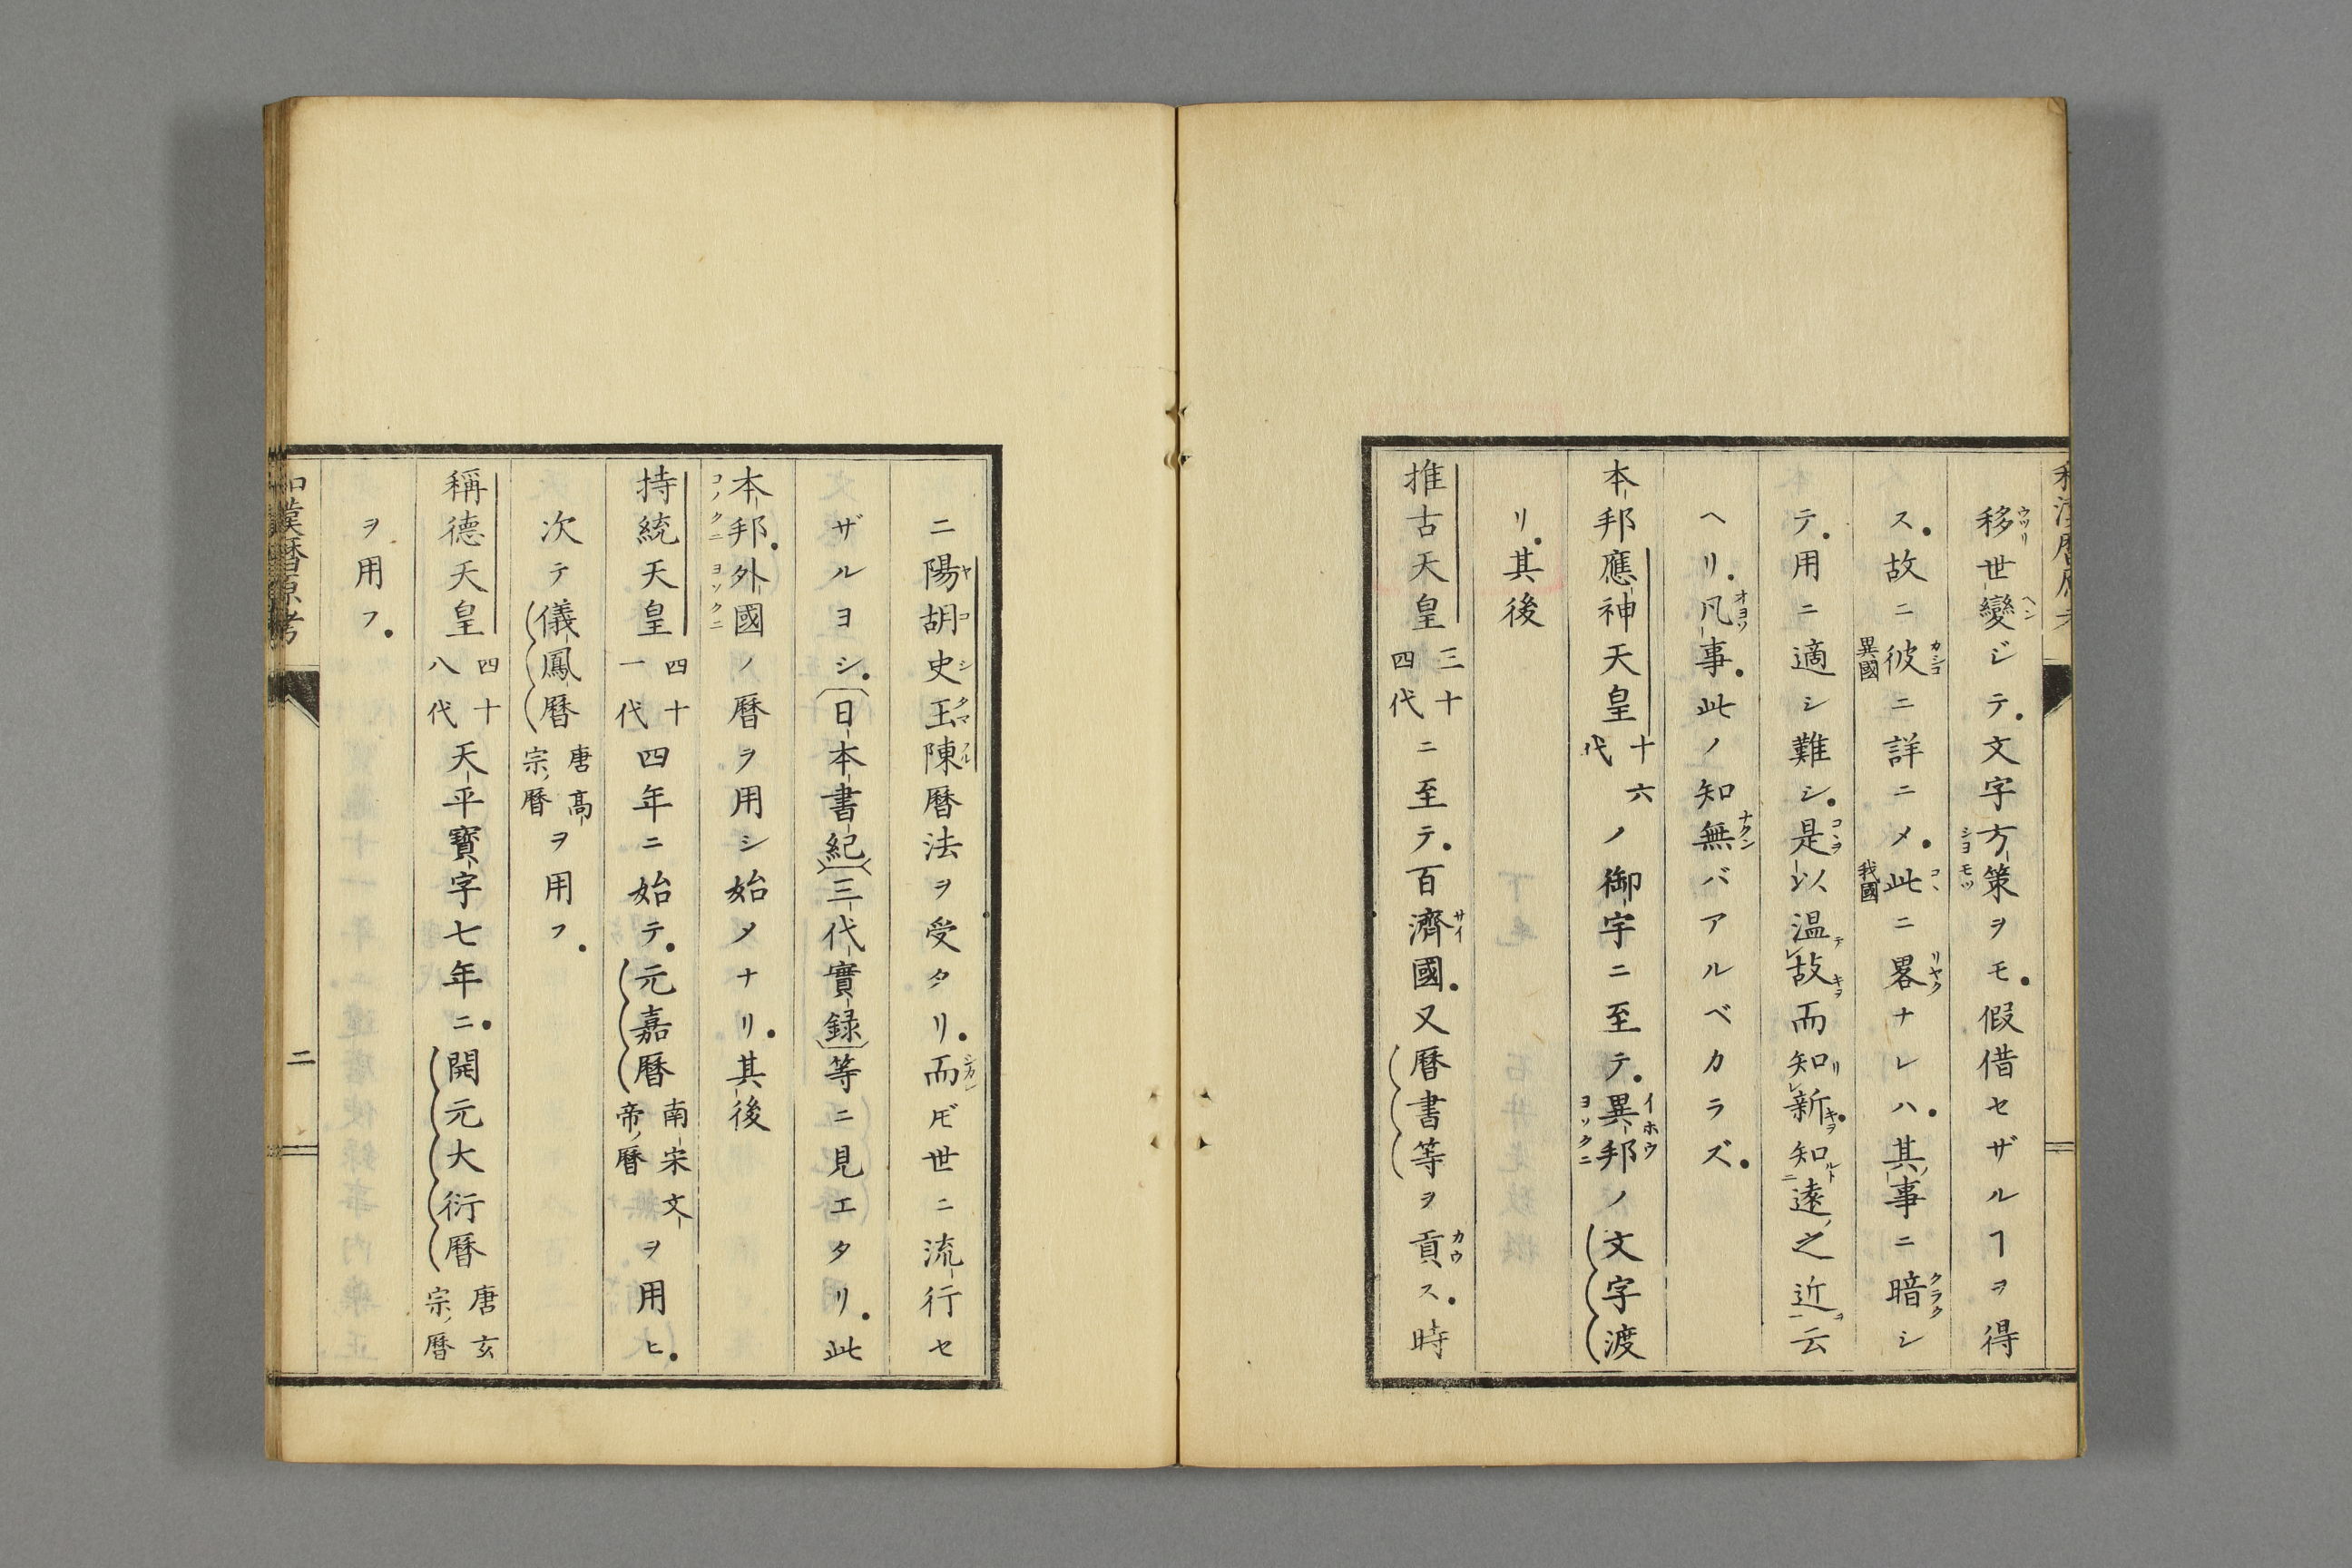 移世變ジテ文字方策ヲモ假借セザルヿヲ得
ス故ニ彼ニ詳ニメ此ニ畧ナレハ其事ニ暗シ
テ用ニ適シ難シ是以温故而知新知遠之近云
ヘリ凡事此ノ知無バアルベカラズ
本邦應神天皇十六代ノ御宇ニ至テ異邦ノ文字渡
リ其後
推古天皇三十四代ニ至テ百濟國又暦書等ヲ貢ス時
ニ陽胡史王陳暦法ヲ受タリ而𪜈世ニ流行セ
ザルヨシ日本書紀三代實録等ニ見エタリ此
本邦外國ノ暦ヲ用シ始メナリ其後
持統天皇四十一代四年ニ始テ元嘉暦南宋文帝暦ヲ用ヒ
次テ儀鳳暦唐高宗暦ヲ用フ
稱德天皇四十八代天平寳字七年ニ開元大衍暦唐玄宗暦
ヲ用フ
和漢暦原考
二